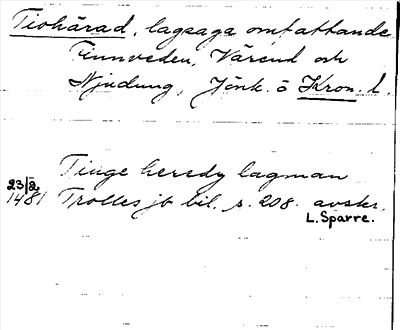 Tiohärad, lagsaga omfattande
Finnveden, Värend och
Njudung, Jönk. o Kron. l.
Tiuge heredz lagman
23/2 1481 Trolles jb bil. s. 208. avskr.
L. Sparre.